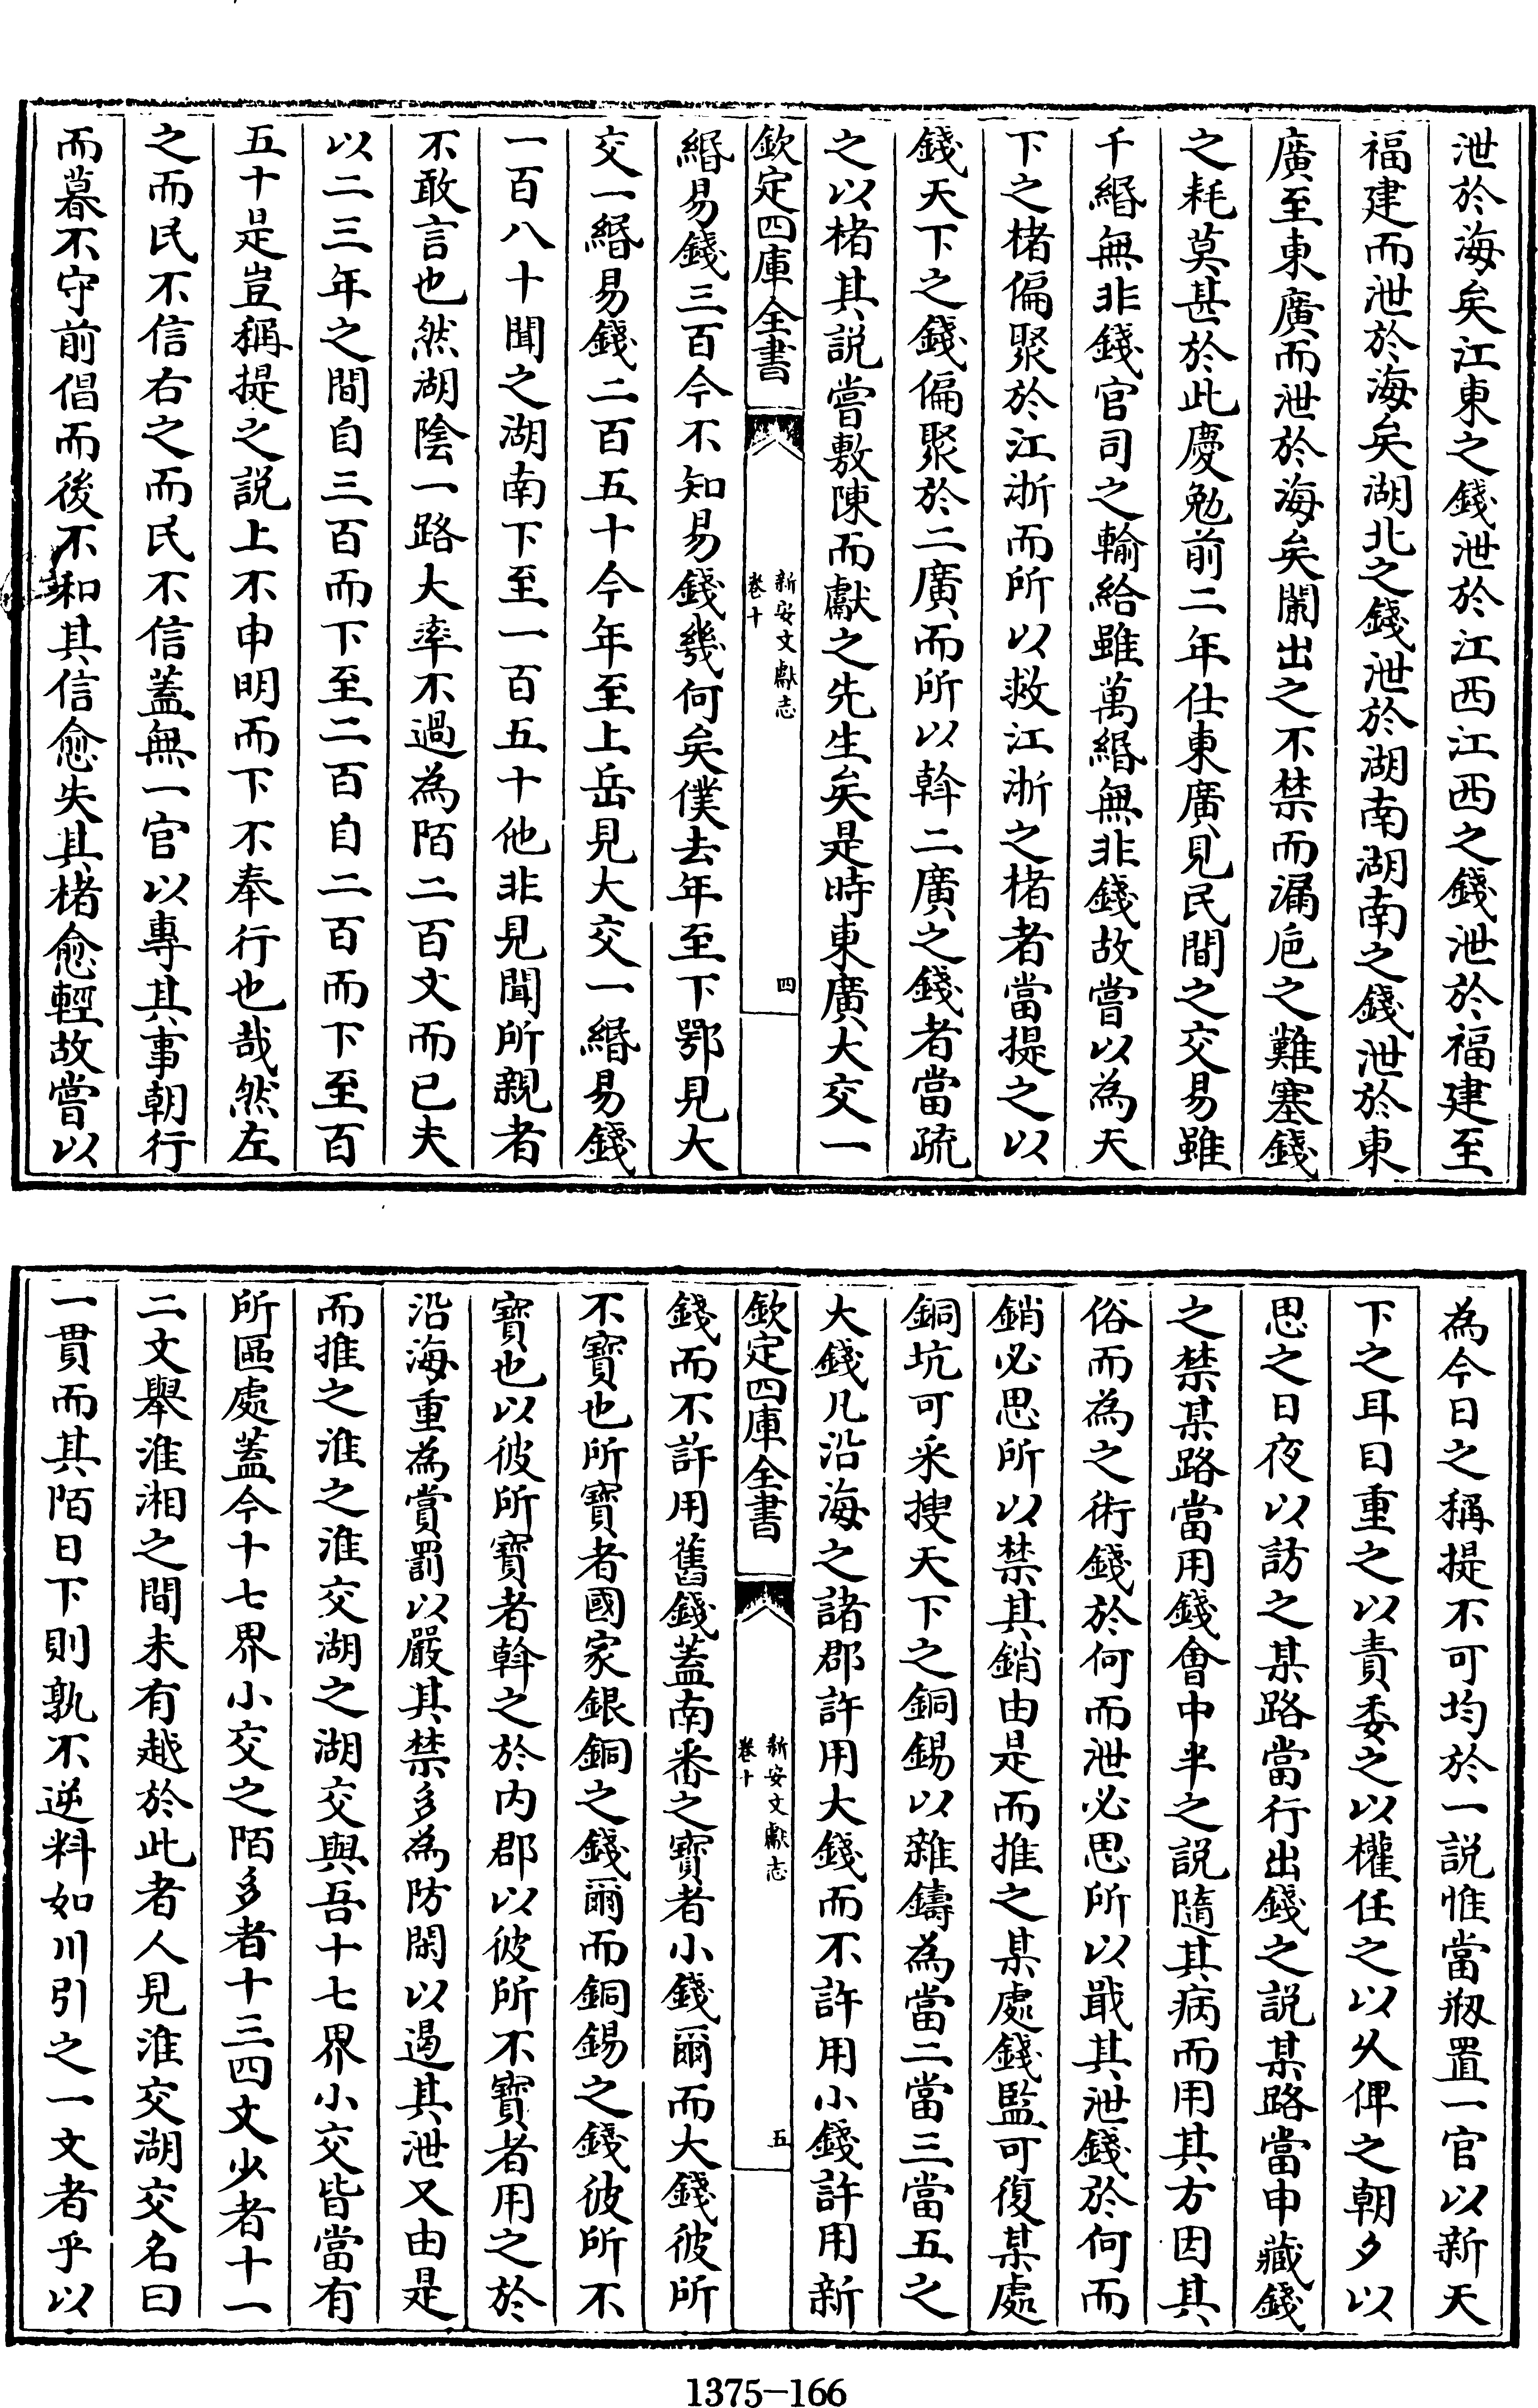 泄於海矣江東之錢泄於江西江西之錢泄於福建至
福建而泄於海矣湖北之錢泄於湖南湖南之錢泄於東
廣至東廣而泄於海矣闌出之不禁而漏巵之難塞錢
之耗莫甚於此慶勉前二年仕東廣見民間之交易雖
千緡無非錢官司之輸給雖萬緡無非錢故嘗以為天
下之楮偏聚於江浙而所以救江浙之楮者當提之以
錢天下之錢偏聚於二廣而所以斡二廣之錢者當疏
之以楮其説嘗敷陳而獻之先生矣是時東廣大交一
欽定四庫全書
新安文獻志
卷十
四
緡易錢三百今不知易錢幾何矣僕去年至下鄂見大
交一緡易錢二百五十今年至上岳見大交一緡易錢
一百八十聞之湖南下至一百五十他非見聞所親者
不敢言也然湖陰一路大率不過為陌二百文而已夫
以二三年之間自三百而下至二百自二百而下至百
五十是豈稱提之説上不申明而下不奉行也哉然左
之而民不信右之而民不信蓋無一官以專其事朝行
而暮不守前倡而後不和其信愈失其楮愈輕故嘗以
為今日之稱提不可均於一説惟當剏置一官以新天
下之耳目重之以責委之以權任之以久俾之朝夕以
思之日夜以訪之某路當行出錢之説某路當申藏錢
之禁某路當用錢會中半之説隨其病而用其方因其
俗而為之術錢於何而泄必思所以戢其泄錢於何而
銷必思所以禁其銷由是而推之某處錢監可復某處
銅坑可采搜天下之銅錫以雜鑄為當二當三當五之
大錢凡沿海之諸郡許用大錢而不許用小錢許用新
欽定四庫全書
新安文獻志
卷十
五
錢而不許用舊錢蓋南番之寶者小錢爾而大錢彼所
不寶也所寶者國家銀銅之錢爾而銅錫之錢彼所不
寶也以彼所寶者斡之於内郡以彼所不寶者用之於
沿海重為賞罰以嚴其禁多為防閑以遏其泄又由是
而推之淮之淮交湖之湖交與吾十七界小交皆當有
所區處蓋今十七界小交之陌多者十三四文少者十一
二文舉淮湘之間未有越於此者人見淮交湖交名曰
一貫而其陌日下則孰不逆料如川引之一文者乎以
1375-166